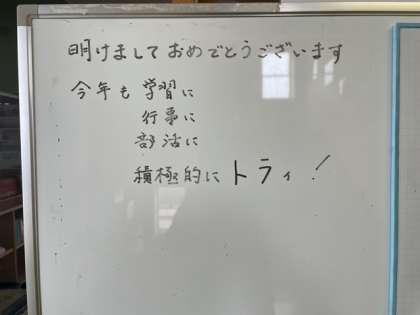 明けましておめでとうございます
今年も学習に
行事に
部活に
積極的にトライ！